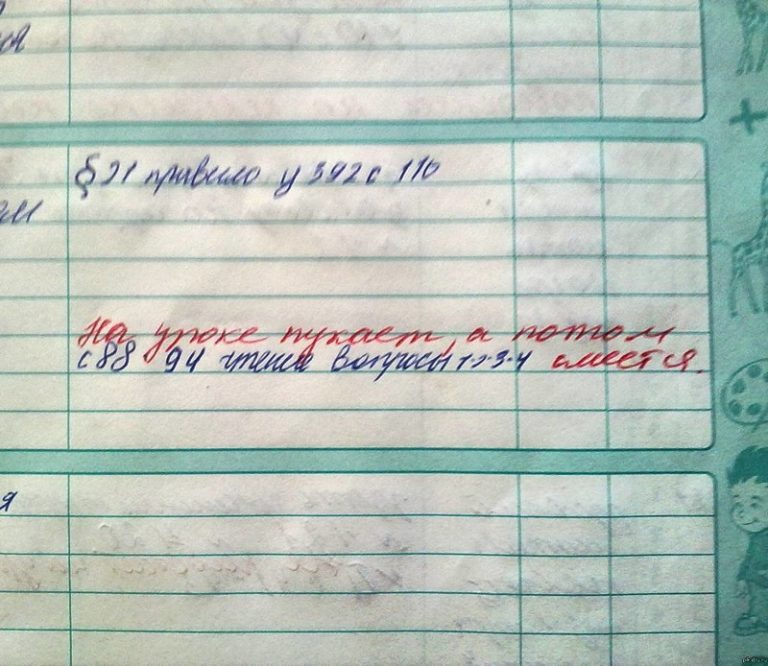 я
§ 21 правило у 392 с 116
ем
На уроке пукает, а потом
с 88 94 чтение вопросы 1-2-3-4 смеется.
я